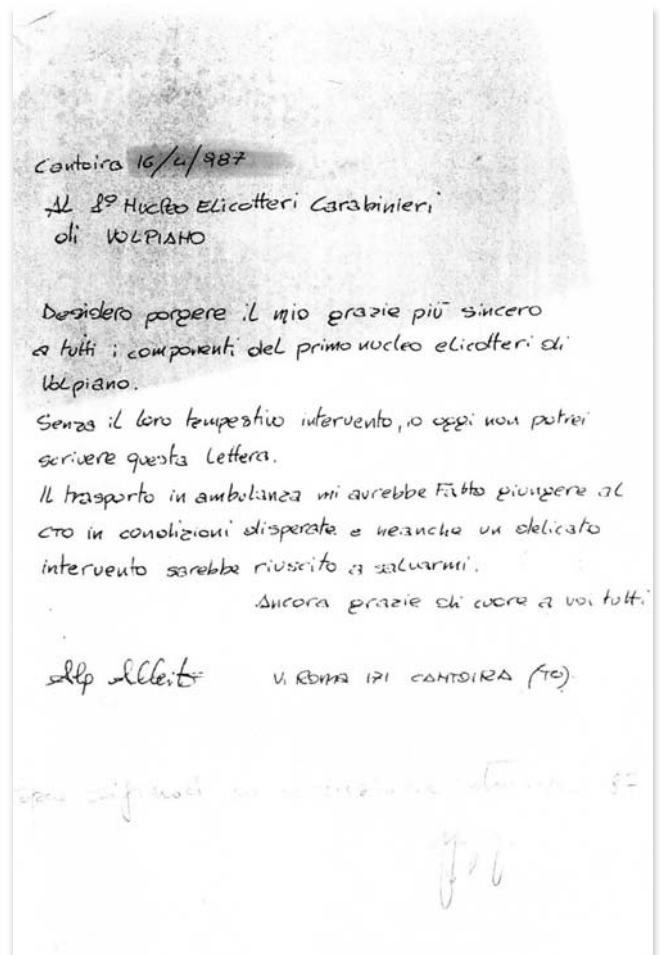 Cantoira 16/4/987
AL 8º Nucleo ELicotteri Carabinieri
di VOLPIANO
Desidero porgere il mio grazie più sincero
a tutti i componenti del primo nucleo elicotteri di
Volpiano.
Senza il loro tempestivo intervento, io oggi non potrei
scrivere questa Lettera.
Il trasporto in ambulanza mi avrebbe Fatto giungere al
CTO in condizioni disperate e neanche un delicato
intervento sarebbe riuscito a salvarmi.
Ancora grazie di cuore a voi tutti
Alp V. ROMA 171 CANTOIRA (TO)
87